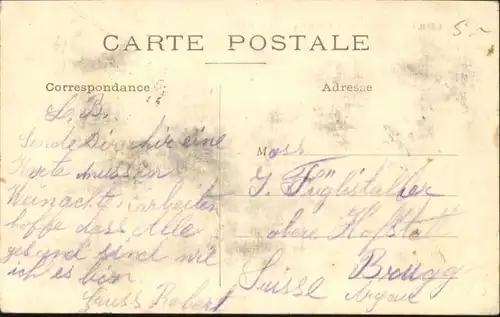 5.-
CARTE POSTALE
Correspondance
Adresse
L. B.
Sende Dir hir eine
Karte mussen
Weinachte arbeiten
hoffe das Alle
gesund sind wie
ich es bin
Gruss Robert
J. Füglistaller
obere Hofstatt
Brugg
Suisse Argau